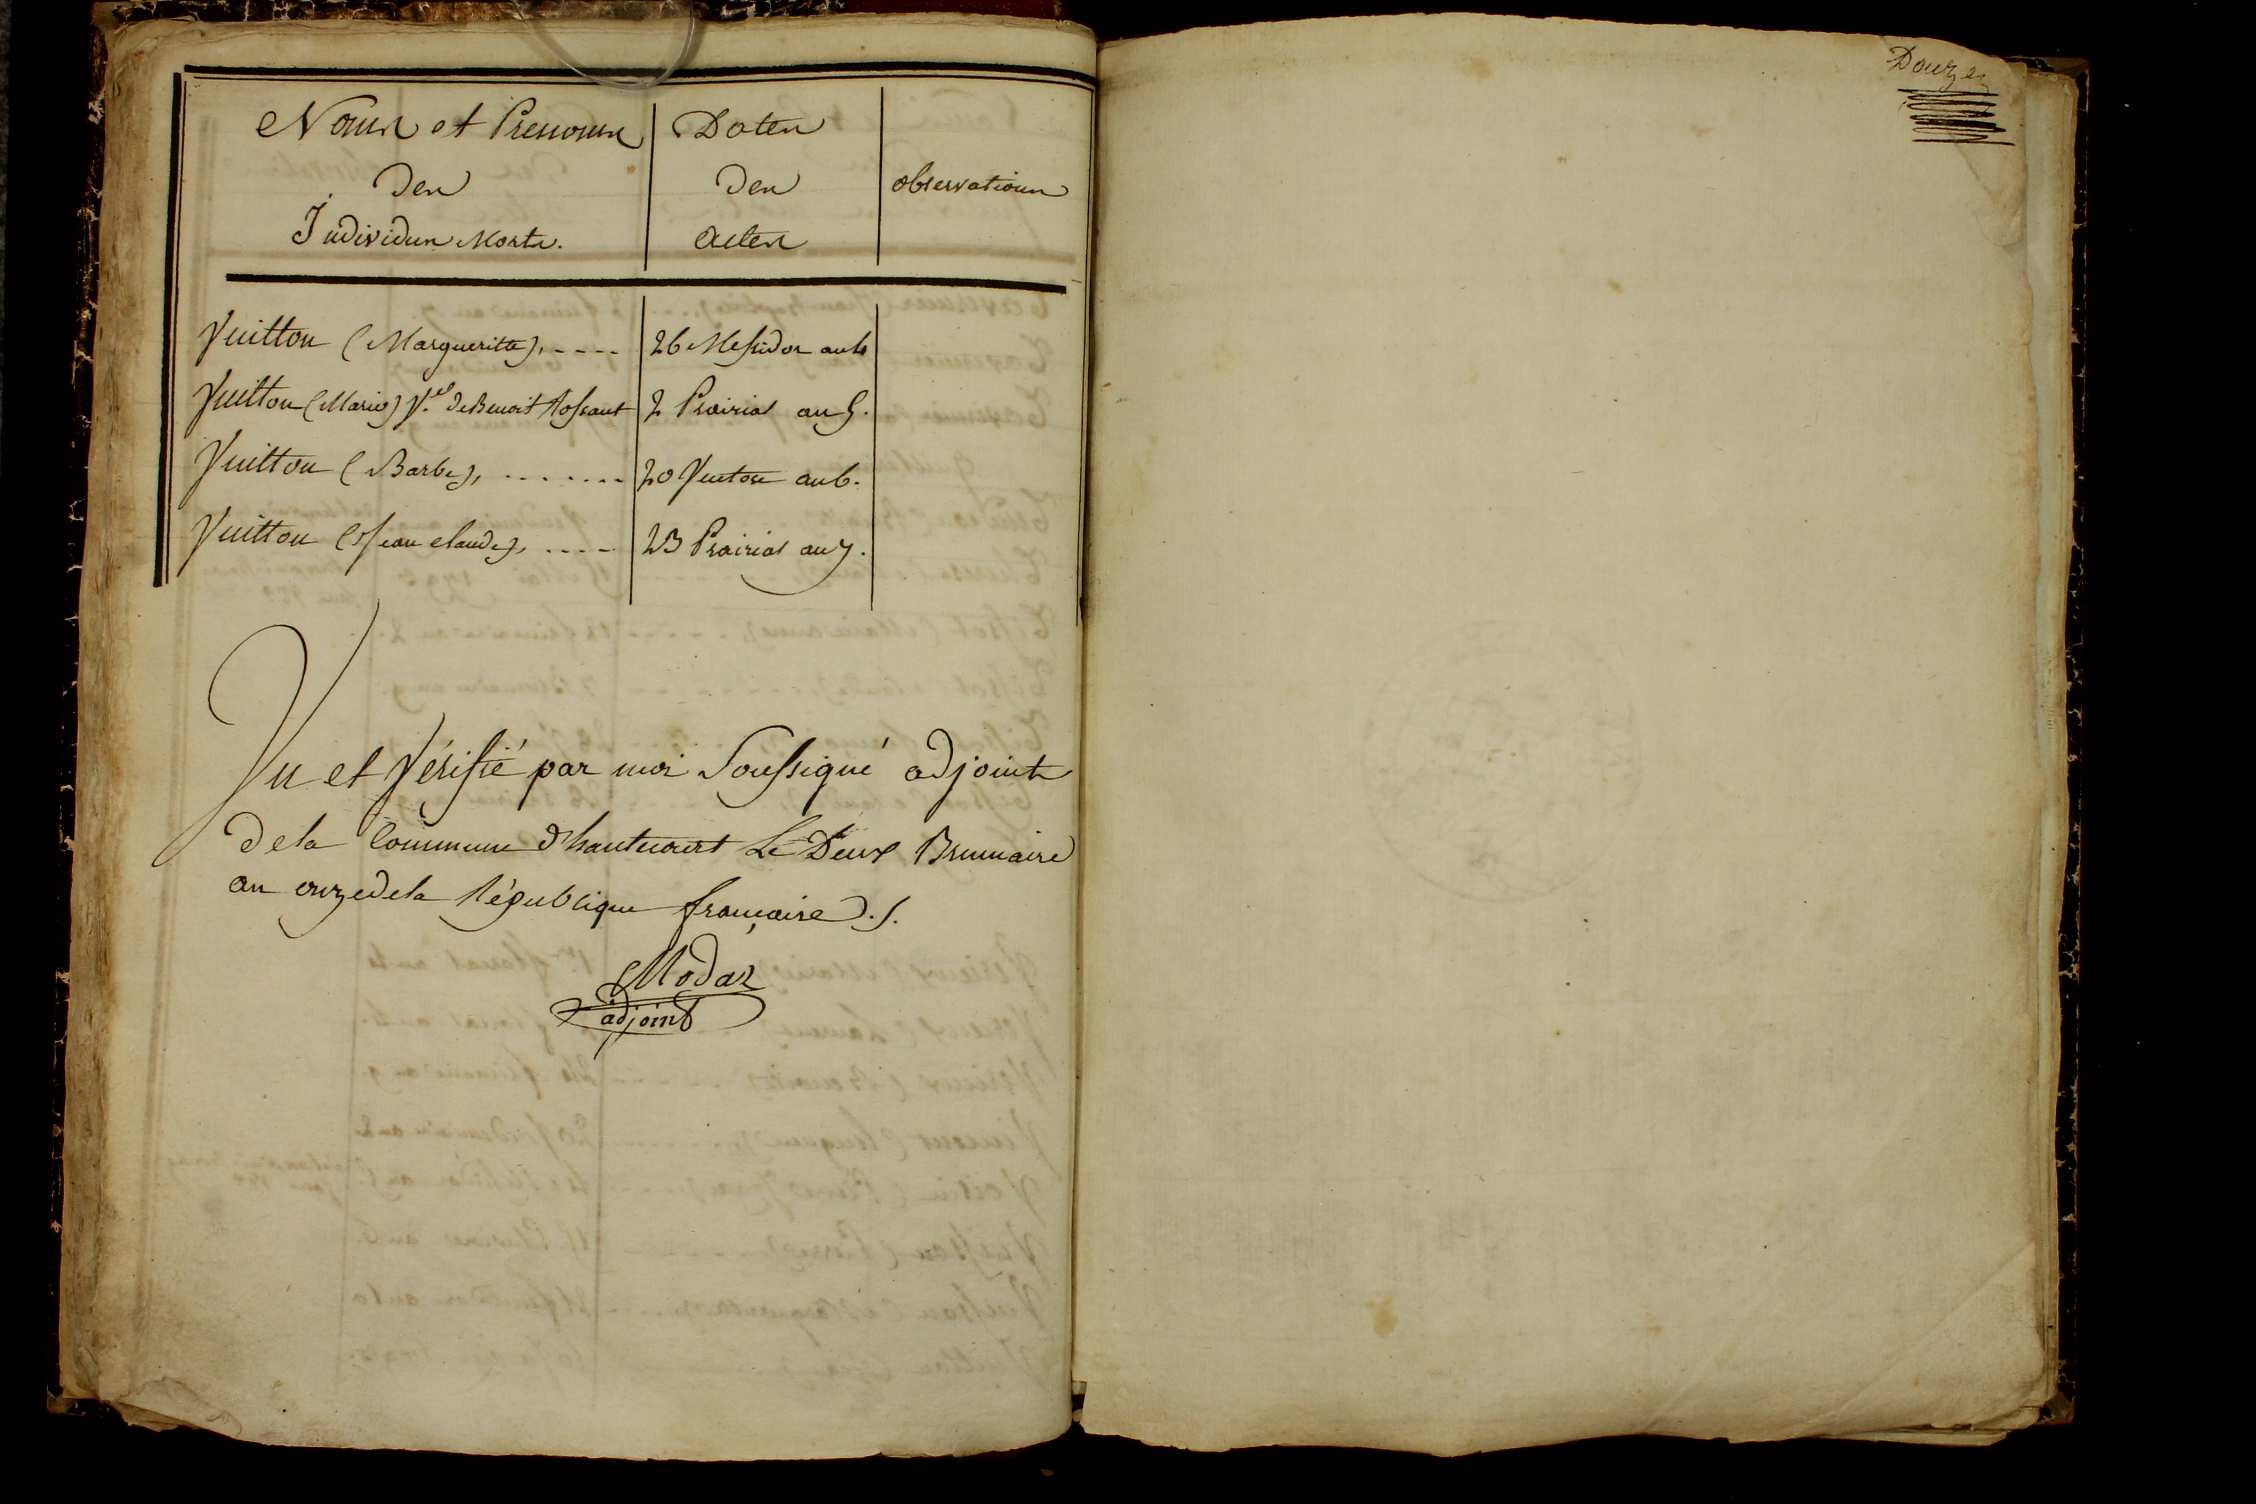 Noms et Prenoms
Des
Individus Morts.
Dates
Des
Actes
observations
Vuitton (Margueritte), ---- 26 Messidor an 4
Vuitton (Marie) V.e de Benoit Rossant 2 Prairial an 5.
Vuitton (Barbe), ....... 20 Ventose an 6.
Vuitton (Jean Claude), ---- 23 Prairial an 7.
Vu et Vérifié par moi Soussigné adjoint
de la Commune d'hautecourt Le Deux Brumaire
an onze de la République française ./.
Modas
adjoint
Douze